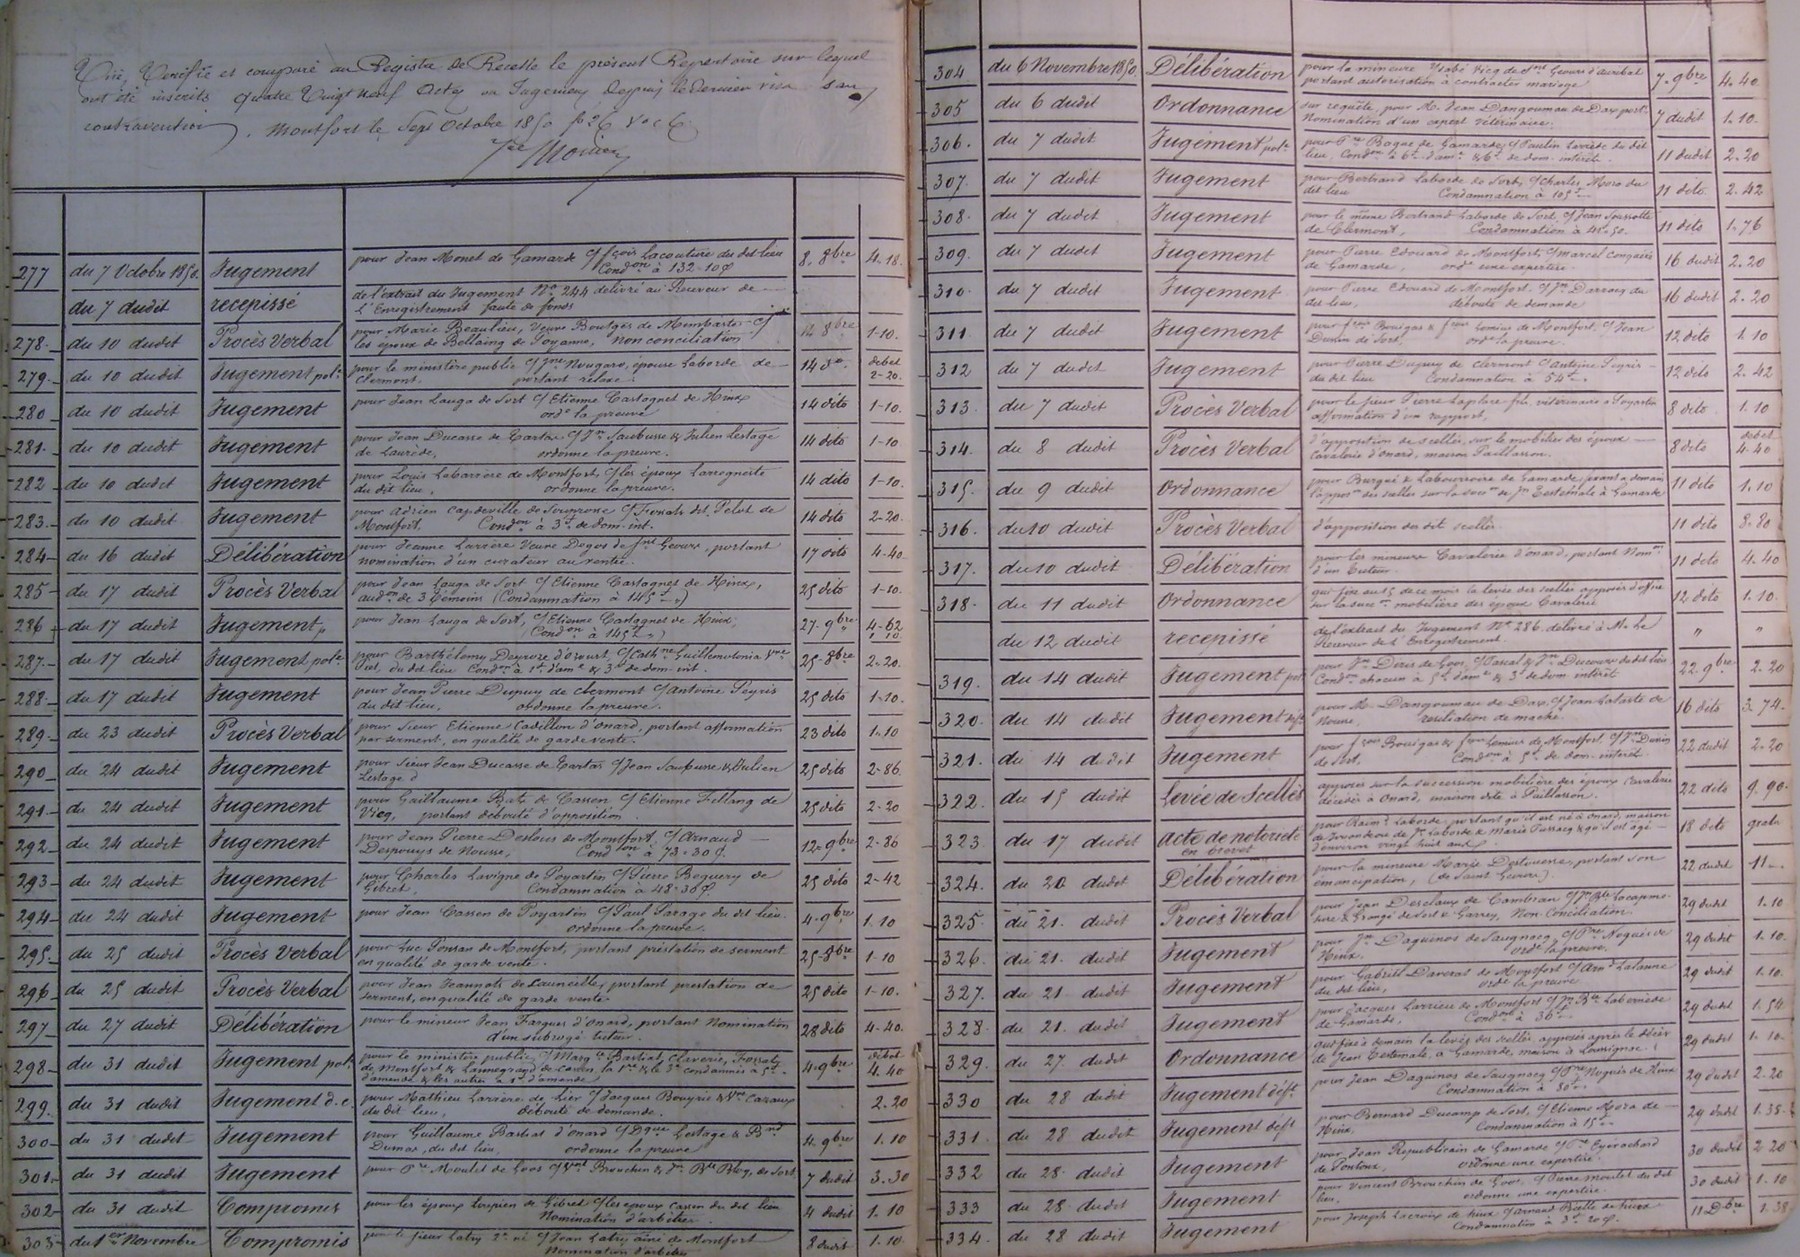 Vu, Vérifié et comparé au Registre de Recette le présent Répertoire sur lequel
ont été inscrits quatre vingt neuf actes ou Jugemens depuis le dernier visa sans
contravention. Montfort le Sept Octobre 1850
277 du 7 Octobre 1850. Jugement pour Jean Monet de Gamarde c/ fçois Lacouture du dit lieu 8. 8bre 4-18.
Condon à 132-10c
du 7 dudit recepissé de l'extrait du Jugement No 244 délivré au Receveur de
l'Enregistrement faute de fonds
278. du 10 dudit Procès Verbal pour Marie Beaulieu, Veuve Boulges de Mimbaste c/ 12 8bre 1-10.
les époux de Bellaing de Poyanne, Non conciliation
279. du 10 dudit Jugement pol. pour le ministère public c/ Nougaro, épouse Laborde de 14 do débet 2-20.
Clermont. portant relaxe
280 du 10 dudit Jugement pour Jean Lauga de Sort c/ Etienne Castagnet de Hinx 14 dito 1-10.
orde la preuve
281. du 10 dudit Jugement pour Jean Ducasse de Cartas c/ Jn Saubusse & Julien Lestage 14 dito 1-10
de Laurède, ordonne la preuve.
282 du 10 dudit Jugement pour Louis Labarrère de Montfort, c/ les époux Larregneste 14 dito 1-10.
du dit lieu, ordonne la preuve.
283. du 10 dudit Jugement pour Adrien Capdeville de Souprosse c/ dit Pelut de 14 dito 2-20.
Montfort. Condon à 3f de dom. int.
284 du 16 dudit Délibération pour Jeanne Larrère Veuve Degos de St Geours, portant 17 dito 4-40.
nomination d'un curateur au ventre.
285 du 17 dudit Procès Verbal pour Jean Lauga de Sort c/ Etienne Castagnet de Hinx, 25 dito 1-10.
audon de 3 témoins (Condamnation à 145f)
286 du 17 dudit Jugement pour Jean Lauga de Sort, c/ Etienne Castagnet de Hinx, 27. 9bre 4-62
(Condon à 145f) 1 10
287. du 17 dudit Jugement pol. pour Barthélemy Deyroze d'ozourt, c/ Cathne Guillemotonia Vve 25-8bre 2-20.
du dit lieu Condon à 1f d'ame & 3f de dom. int.
288. du 17 dudit Jugement pour Jean Pierre Dupuy de Clermont c/ Antoine Peyris 25 dito 1-10.
du dit lieu, ordonne la preuve.
289. du 23 dudit Procès Verbal pour Sieur Etienne Cadillon d'onard, portant affirmation 23 dito 1-10
par serment, en qualité de garde vente.
290 du 24 dudit Jugement pour Sieur Jean Ducasse de Cartas c/ Jean Saubusse & Julien 25 dito 2-86
Lestage
291 du 24 dudit Jugement pour Guillaume Batz de Cassen c/ Etienne Fellang de 25 dito 2-20
Vicq, portant débouté d'opposition
292 du 24 dudit Jugement pour Jean Pierre Deslous de Montfort c/ Arnaud 12-9bre 2-86
Despouys de Nousse, Condon à 73-30c.
293 du 24 dudit Jugement pour Charles Lavigne de Poyartin c/ Pierre Baquery de 25 dito 2-42
Gibret, Condamnation à 48-36c
294 du 24 dudit Jugement pour Jean Cassen de Poyartin c/ Paul Parage du dit lieu. 4-9bre 1.10
ordonne la preuve.
295. du 25 dudit Procès Verbal pour Luc Ponsan de Montfort, portant préstation de serment 25-8bre 1-10
en qualité de garde vente.
296 du 25 dudit Procès Verbal pour Jean Jeannots de Laureille, portant prestation de 25 dito 1-10.
serment, en qualité de garde vente
297 du 27 dudit Délibération pour le mineur Jean Fargues d'onard, portant Nomination 28 dito 4-40.
d'un subrogé tuteur.
298 du 31 dudit Jugement pol. pour le ministère public c/ Bastiat, Claverie, 4-9bre débet 4.40
de Montfort & Lannegrand de Cassen, la 1re & le 3e condamnés à 5f
d'amende & les autres à 1f d'amende
299. du 31 dudit Jugement d. c. pour Mathieu Larrière de Lier c/ Jacques Bouyrie & Vve Cazaux 2.20
du dit lieu, débouté de demande.
300 du 31 dudit Jugement pour Guillaume Bastiat d'onard c/ Dque Lestage & Bnd 4. 9bre 1.10
Dumas, du dit lieu, ordonne la preuve
301. du 31 dudit Jugement pour Pre Moulet de Goos c/ Vent Brouchin & Jn Bte Bley, de Sort 7 dudit 3.30
302 du 31 dudit Compromis pour les époux Loupien de Gibret c/ les époux Cassen du dit lieu 4 dudit 1.10
Nomination d'arbitre
303 du 1er Novembre Compromis pour le sieur Latry 2e né c/ Jean Latry ainé de Montfort 8 dudit 1.10
Nomination d'arbitre
304 du 6 Novembre 1850. Délibération pour la mineure Vicq de St Geours d'auribat 7. 9bre 4.40
portant autorisation à contracter mariage
305 du 6 dudit Ordonnance sur requête, pour M. Jean Dangoumau de Dax port. 7 dudit 1.10.
Nomination d'un expert vétérinaire.
306. du 7 dudit Jugement pol. pour Pre Boque de Gamarde, c/ Paulin Larrède du dit 11 dudit 2.20
lieu, Condon à 6f d'ame & 6f de dom. intérêt.
307. du 7 dudit Jugement pour Bertrand Laborde de Sort, c/ Charles Mora du 11 dito 2.42
dit lieu Condamnation à 105f
308. du 7 dudit Jugement pour le même Bertrand Laborde de Sort c/ Jean Soussotte 11 dito 1.76
de Clermont, Condamnation à 41f.50.
309. du 7 dudit Jugement pour Pierre Edouard de Montfort, c/ Marcel 16 dudit 2.20
de Gamarde, orde une expertise.
310. du 7 dudit Jugement pour Pierre Edouard de Montfort. c/ Jn Darracq du 16 dudit 2-20
dit lieu, débouté de demande
311 du 7 dudit Jugement pour fçois Bouigas & fçois Lomius de Montfort, c/ Jean 12 dito 1.10
Dunin de Sort, orde la preuve.
312 du 7 dudit Jugement pour Pierre Dupuy de Clermont c/ Antoine Peyris 12 dito 2.42
du dit lieu Condamnation à 54f
313. du 7 dudit Procès Verbal pour le sieur Pierre Laplace fils, vétérinaire à Poyartin 8 dito 1.10
affirmation d'un rapport.
314. du 8 dudit Procès Verbal d'apposition de scellés, sur le mobilier des époux 8 dito débet 4.40
Cavalerie d'onard, maison Paillasson.
315. du 9 dudit Ordonnance pour Burgué & Labourroire de Gamarde fixant à demain 11 dito 1.10
l'appon des scellés sur la succon de Jn Testemale à Gamarde
316. du 10 dudit Procès Verbal d'apposition des dit scellés. 11 dito 8.80
317. du 10 dudit Délibération pour les mineurs Cavalerie d'onard, portant Nomon 11 dito 4.40
d'un Tuteur.
318. du 11 dudit Ordonnance qui fixe au 15 de ce mois la levée des scellés apposés d'office 12 dito 1.10.
sur la succon mobilière des époux Cavalerie
du 12 dudit recepissé de l'extrait du Jugement No 286. délivré à M. le " "
Receveur de l'Enregistrement
319. du 14 dudit Jugement pol pour Doris de Goos, c/ Pascal & Jn Ducourn du dit lieu 22. 9bre 2.20
Condon chacun à 5f d'ame & 3f de dom intérêt
320. du 14 dudit Jugement déft pour M. Dangoumau de Dax, c/ Jean Lalaste de 16 dito 3.74.
Nousse, résiliation de marché.
321. du 14 dudit Jugement pour fçois Bouigas & fçois Lomius de Montfort c/ Jn Dunin 22 dudit 2.20
de Sort, Condon à 5f de dom. intérêt
322. du 15 dudit Levée de Scellés apposés sur la succession mobilière des époux Cavalerie 22 dito 9.90.
décédés à Onard, maison dite à Paillasson.
323. du 17 dudit Acte de notoriété en brevet pour Raimd Laborde, portant qu'il est né à onard, maison 18 dito gratis
de de Jn Laborde & Marie Tussacq & qu'il est âgé
d'environ vingt huit ans.
324. du 20 dudit Délibération pour la mineure Marie Destouesse, portant son 22 dudit 11-.
émancipation, (de Saint Geours).
325 du 21. dudit Procès Verbal pour Jean Desclaux de Cambran c/ Jn Bte Lacapme- 29 dudit 1.10
lure & Grangé de Sort & Garrey, Non Conciliation.
326. du 21. dudit Jugement pour Jn Daguinos de Saugnacq c/ Pre Noguès de 29 dudit 1.10.
Hinx. orde la preuve.
327. du 21 dudit Jugement pour Gabriel Daverat de Montfort c/ Arnd Lalanne 29 dudit 1.10.
du dit lieu, orde la preuve
328. du 21. dudit Jugement pour Jacques Larrieu de Montfort c/ Jn Bte Labeyriede 29 dudit 1.54
de Gamarde, Condon à 36f
329. du 27. dudit Ordonnance qui fixe à demain la levée des scellés, apposés après le décès 29 dudit 1.10.
de Jean Testemale, à Gamarde, maison à Lousignac
330 du 28 dudit Jugement déft. pour Jean Daguinos de Saugnacq c/ Pre Noguès de Hinx 29 dudit 2.20
Condamnation à 30f
331. du 28 dudit Jugement déft pour Bernard Ducamp de Sort, c/ Etienne Mora de 29 dudit 1.38
Hinx, Condamnation à 15f
332 du 28. dudit Jugement pour Jean Republicain de Gamarde c/ 30 dudit 2 20
de Pontonx, ordonne une expertise.
333 du 28. dudit Jugement pour Vincent Brouchin de Goos c/ Pierre Moulet du dit 30 dudit 1.10
lieu, ordonne une expertise.
334. du 28 dudit Jugement pour Joseph Lacroix de Hinx c/ Arnaud Bielle de Hinx 11 Dbre 1.38
Condamnation à 3f 20c.